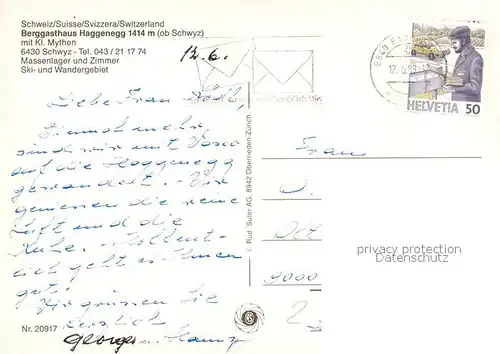 Schweiz/Suisse/Svizzera/Switzerland
Berggasthaus Haggenegg 1414 m (ob Schwyz)
mit Kl. Mythen
6430 Schwyz - Tel. 043 / 21 17 74
Massenlager und Zimmer
Ski- und Wandergebiet
12.6.
8840
12.
HELVETIA 50
Liebe Frau
Einmal mehr
sind wir mit
auf die Haggenegg
gewandert. Wir
geniessen die reine
Luft und die
Ruhe. Hoffent-
lich geht es Ihnen
gut!
Wir grüssen Sie
herzlich
Georges
Frau
9000
privacy protection
Datenschutz
© Rud. Suter AG, 8942 Oberrieden-Zürich
Nr. 20917